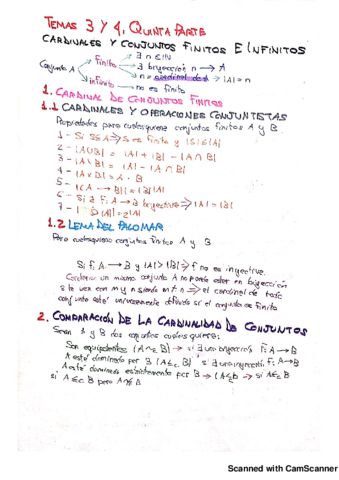 TEMAS 3 Y 4, QUINTA PARTE
CARDINALES Y CONJUNTOS FINITOS E INFINITOS
∃ n ∈ ℕ
Conjunto A finito ∃ biyección n → A
n = cardinal de A → |A| = n
infinito → no es finito
1. CARDINAL DE CONJUNTOS FINITOS
1.1 CARDINALES Y OPERACIONES CONJUNTISTAS
Propiedades para cualesquiera conjuntos finitos A y B
1 - Si S ⊆ A → S es finito y |S| ≤ |A|
2 - |A ∪ B| = |A| + |B| - |A ∩ B|
3 - |A \ B| = |A| - |A ∩ B|
4 - |A × B| = A · B
5 - |(A → B)| = |B|^|A|
6 - Si ∃ f: A → B biyectiva → |A| = |B|
7 - |℘(A)| = 2^|A|
1.2 LEMA DEL PALOMAR
Para cualesquiera conjuntos finitos A y B
Si f: A → B y |A| > |B| → f no es inyectiva.
un mismo conjunto A no puede estar en biyección
a la vez con m y n siendo m ≠ n → el cardinal de todo
conjunto está unívocamente definido si el conjunto es finito
2. COMPARACIÓN DE LA CARDINALIDAD DE CONJUNTOS
Sean A y B dos conjuntos cualesquiera:
Son equipotentes (A ~c B) → si ∃ una biyección f: A → B
A está dominado por B (A ≤c B) → si ∃ una inyección f: A → B
A está dominado estrictamente por B → (A <c B) → si A ≤c B
si A ≤c B pero A ≁ B
Scanned with CamScanner